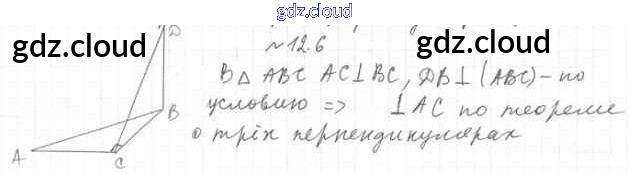 gdz.cloud
gdz.cloud
gdz.cloud
№12.6
D
В△ ABC AC⊥BC, DB⊥(ABC)-по
условию => ⊥AC по теореме
о трёх перпендикулярах
B
A
C